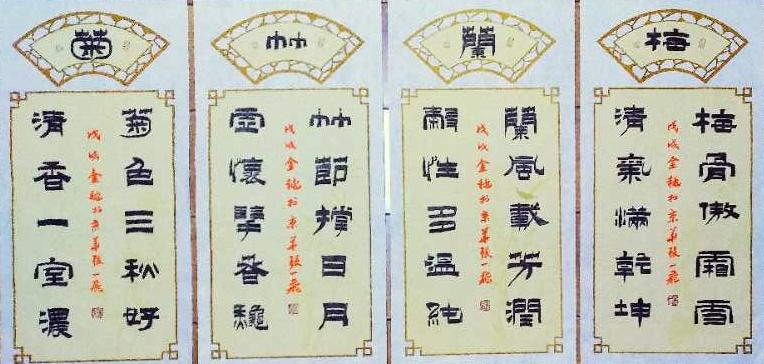 梅
梅骨傲霜雪
戊戌金秋於京華張一飛
清氣滿乾坤
蘭
蘭風載芳潤
戊戌金秋於京華張一飛
性多溫純
竹
竹節撐日月
戊戌金秋於京華張一飛
懷
菊
菊色三秋好
戊戌金秋於京華張一飛
清香一室濃